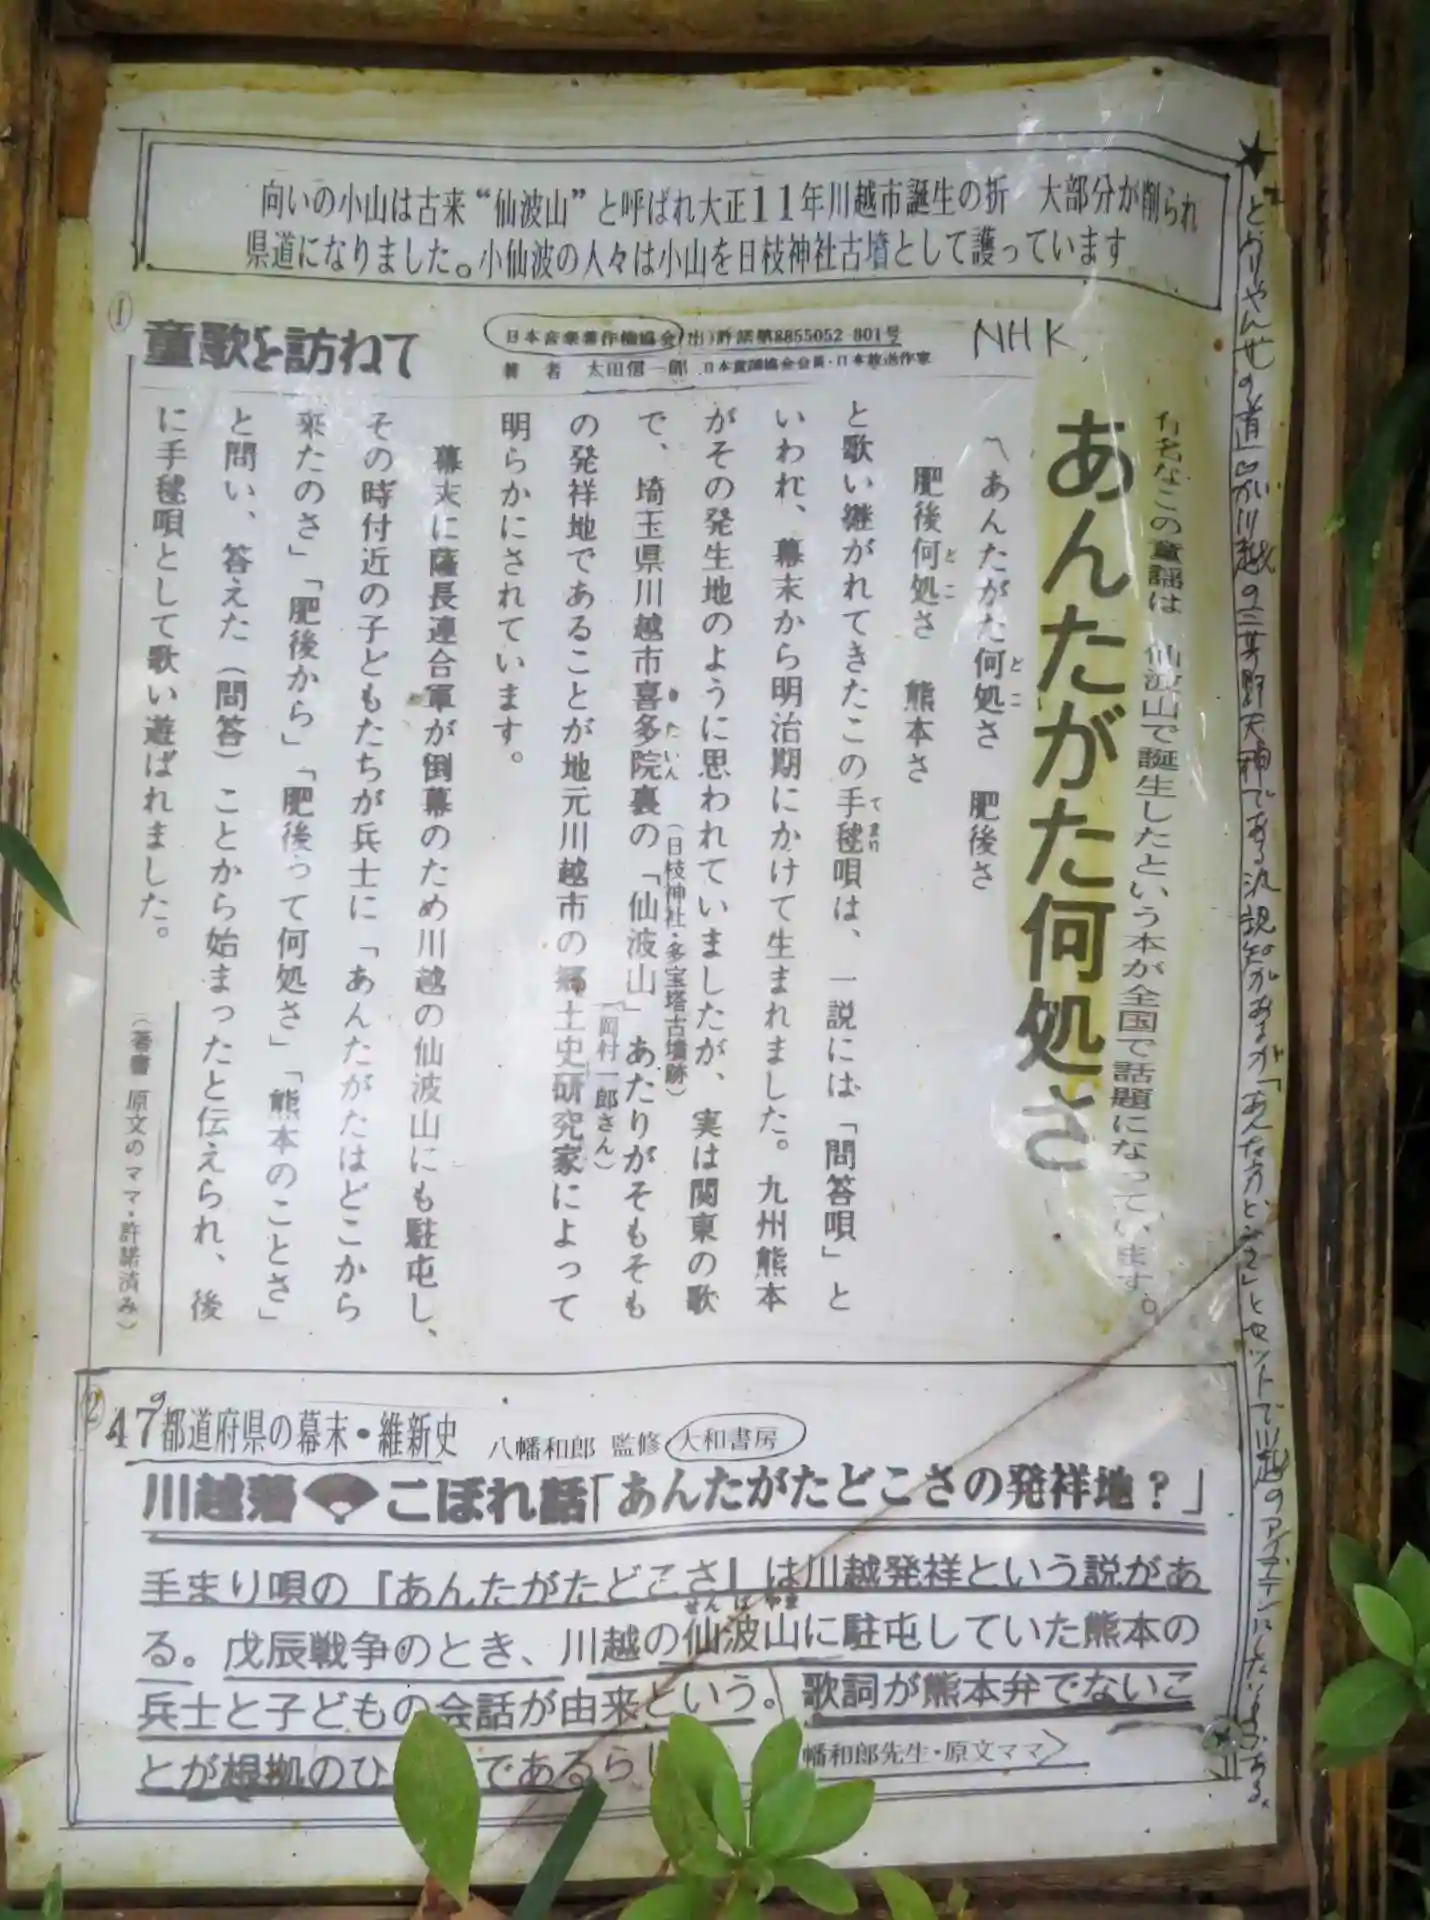 向いの小山は古来“仙波山”と呼ばれ大正11年川越市誕生の折　大部分が削られ
県道になりました。小仙波の人々は小山を日枝神社古墳として護っています
①
童歌を訪ねて
日本音楽著作権協会(出)許諾第8855052-801号
著　者　太田信一郎　日本童謡協会会員・日本放送作家
NHK
有名なこの童謡は　仙波山で誕生したという本が全国で話題になっています。
あんたがた何処さ
〽あんたがた何処さ　肥後さ
肥後何処さ　熊本さ
と歌い継がれてきたこの手毬唄は、一説には「問答唄」と
いわれ、幕末から明治期にかけて生まれました。九州熊本
がその発生地のように思われていましたが、実は関東の歌
で、埼玉県川越市喜多院裏の「仙波山」あたりがそもそも
(日枝神社・多宝塔古墳跡)
の発祥地であることが地元川越市の郷土史研究家によって
(岡村一郎さん)
明らかにされています。
幕末に薩長連合軍が倒幕のため川越の仙波山にも駐屯し、
その時付近の子どもたちが兵士に「あんたがたはどこから
来たのさ」「肥後から」「肥後って何処さ」「熊本のことさ」
と問い、答えた（問答）ことから始まったと伝えられ、後
に手毬唄として歌い遊ばれました。
(著書　原文のママ・許諾済み)
②
47都道府県の幕末・維新史　八幡和郎　監修　大和書房
川越藩 こぼれ話「あんたがたどこさの発祥地？」
手まり唄の『あんたがたどこさ』は川越発祥という説があ
る。戊辰戦争のとき、川越の仙波山に駐屯していた熊本の
せんばやま
兵士と子どもの会話が由来という。歌詞が熊本弁でないこ
とが根拠のひ であるらし
幡和郎先生・原文ママ＞